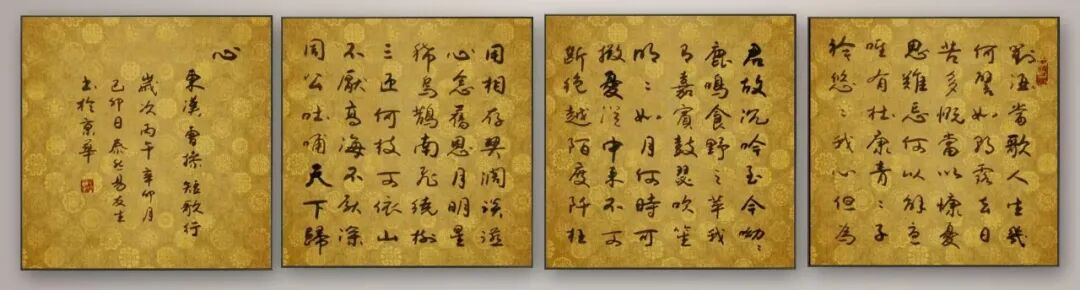 對酒當歌人生幾
何譬如朝露去日
苦多慨當以慷憂
思難忘何以解憂
唯有杜康青〻子
衿悠〻我心但為
君故沉吟至今呦〻
鹿鳴食野之苹我
有嘉賓鼓瑟吹笙
明〻如月何時可
掇憂從中來不可
斷絕越陌度阡枉
用相存契闊談讌
心念舊恩月明星
稀烏鵲南飛繞樹
三匝何枝可依山
不厭高海不厭深
周公吐哺天下歸
心
東漢曹操短歌行
歲次丙午辛卯月
己卯日泰然易友生
書於京華